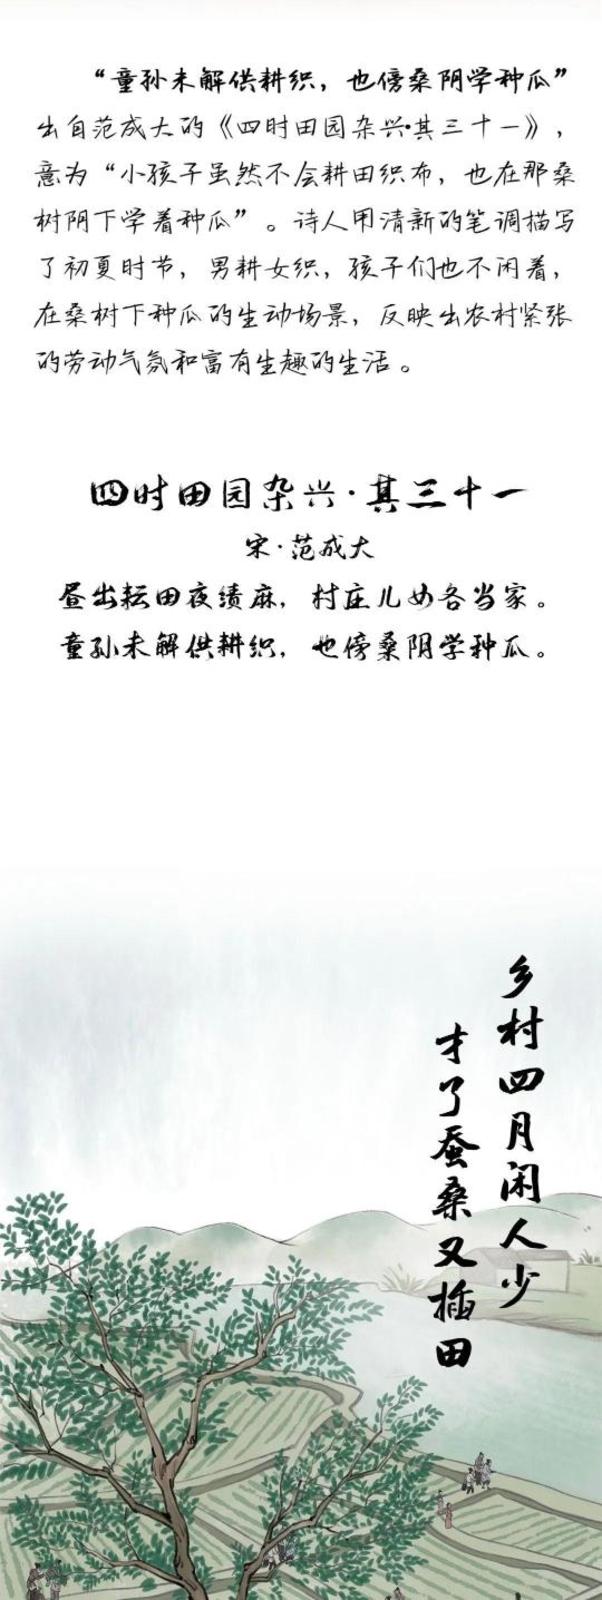 “童孙未解供耕织，也傍桑阴学种瓜”
出自范成大的《四时田园杂兴·其三十一》，
意为“小孩子虽然不会耕田织布，也在那桑
树阴下学着种瓜”。诗人用清新的笔调描写
了初夏时节，男耕女织，孩子们也不闲着，
在桑树下种瓜的生动场景，反映出农村紧张
的劳动气氛和富有生趣的生活。
四时田园杂兴·其三十一
宋·范成大
昼出耘田夜绩麻，村庄儿女各当家。
童孙未解供耕织，也傍桑阴学种瓜。
乡村四月闲人少
才了蚕桑又插田